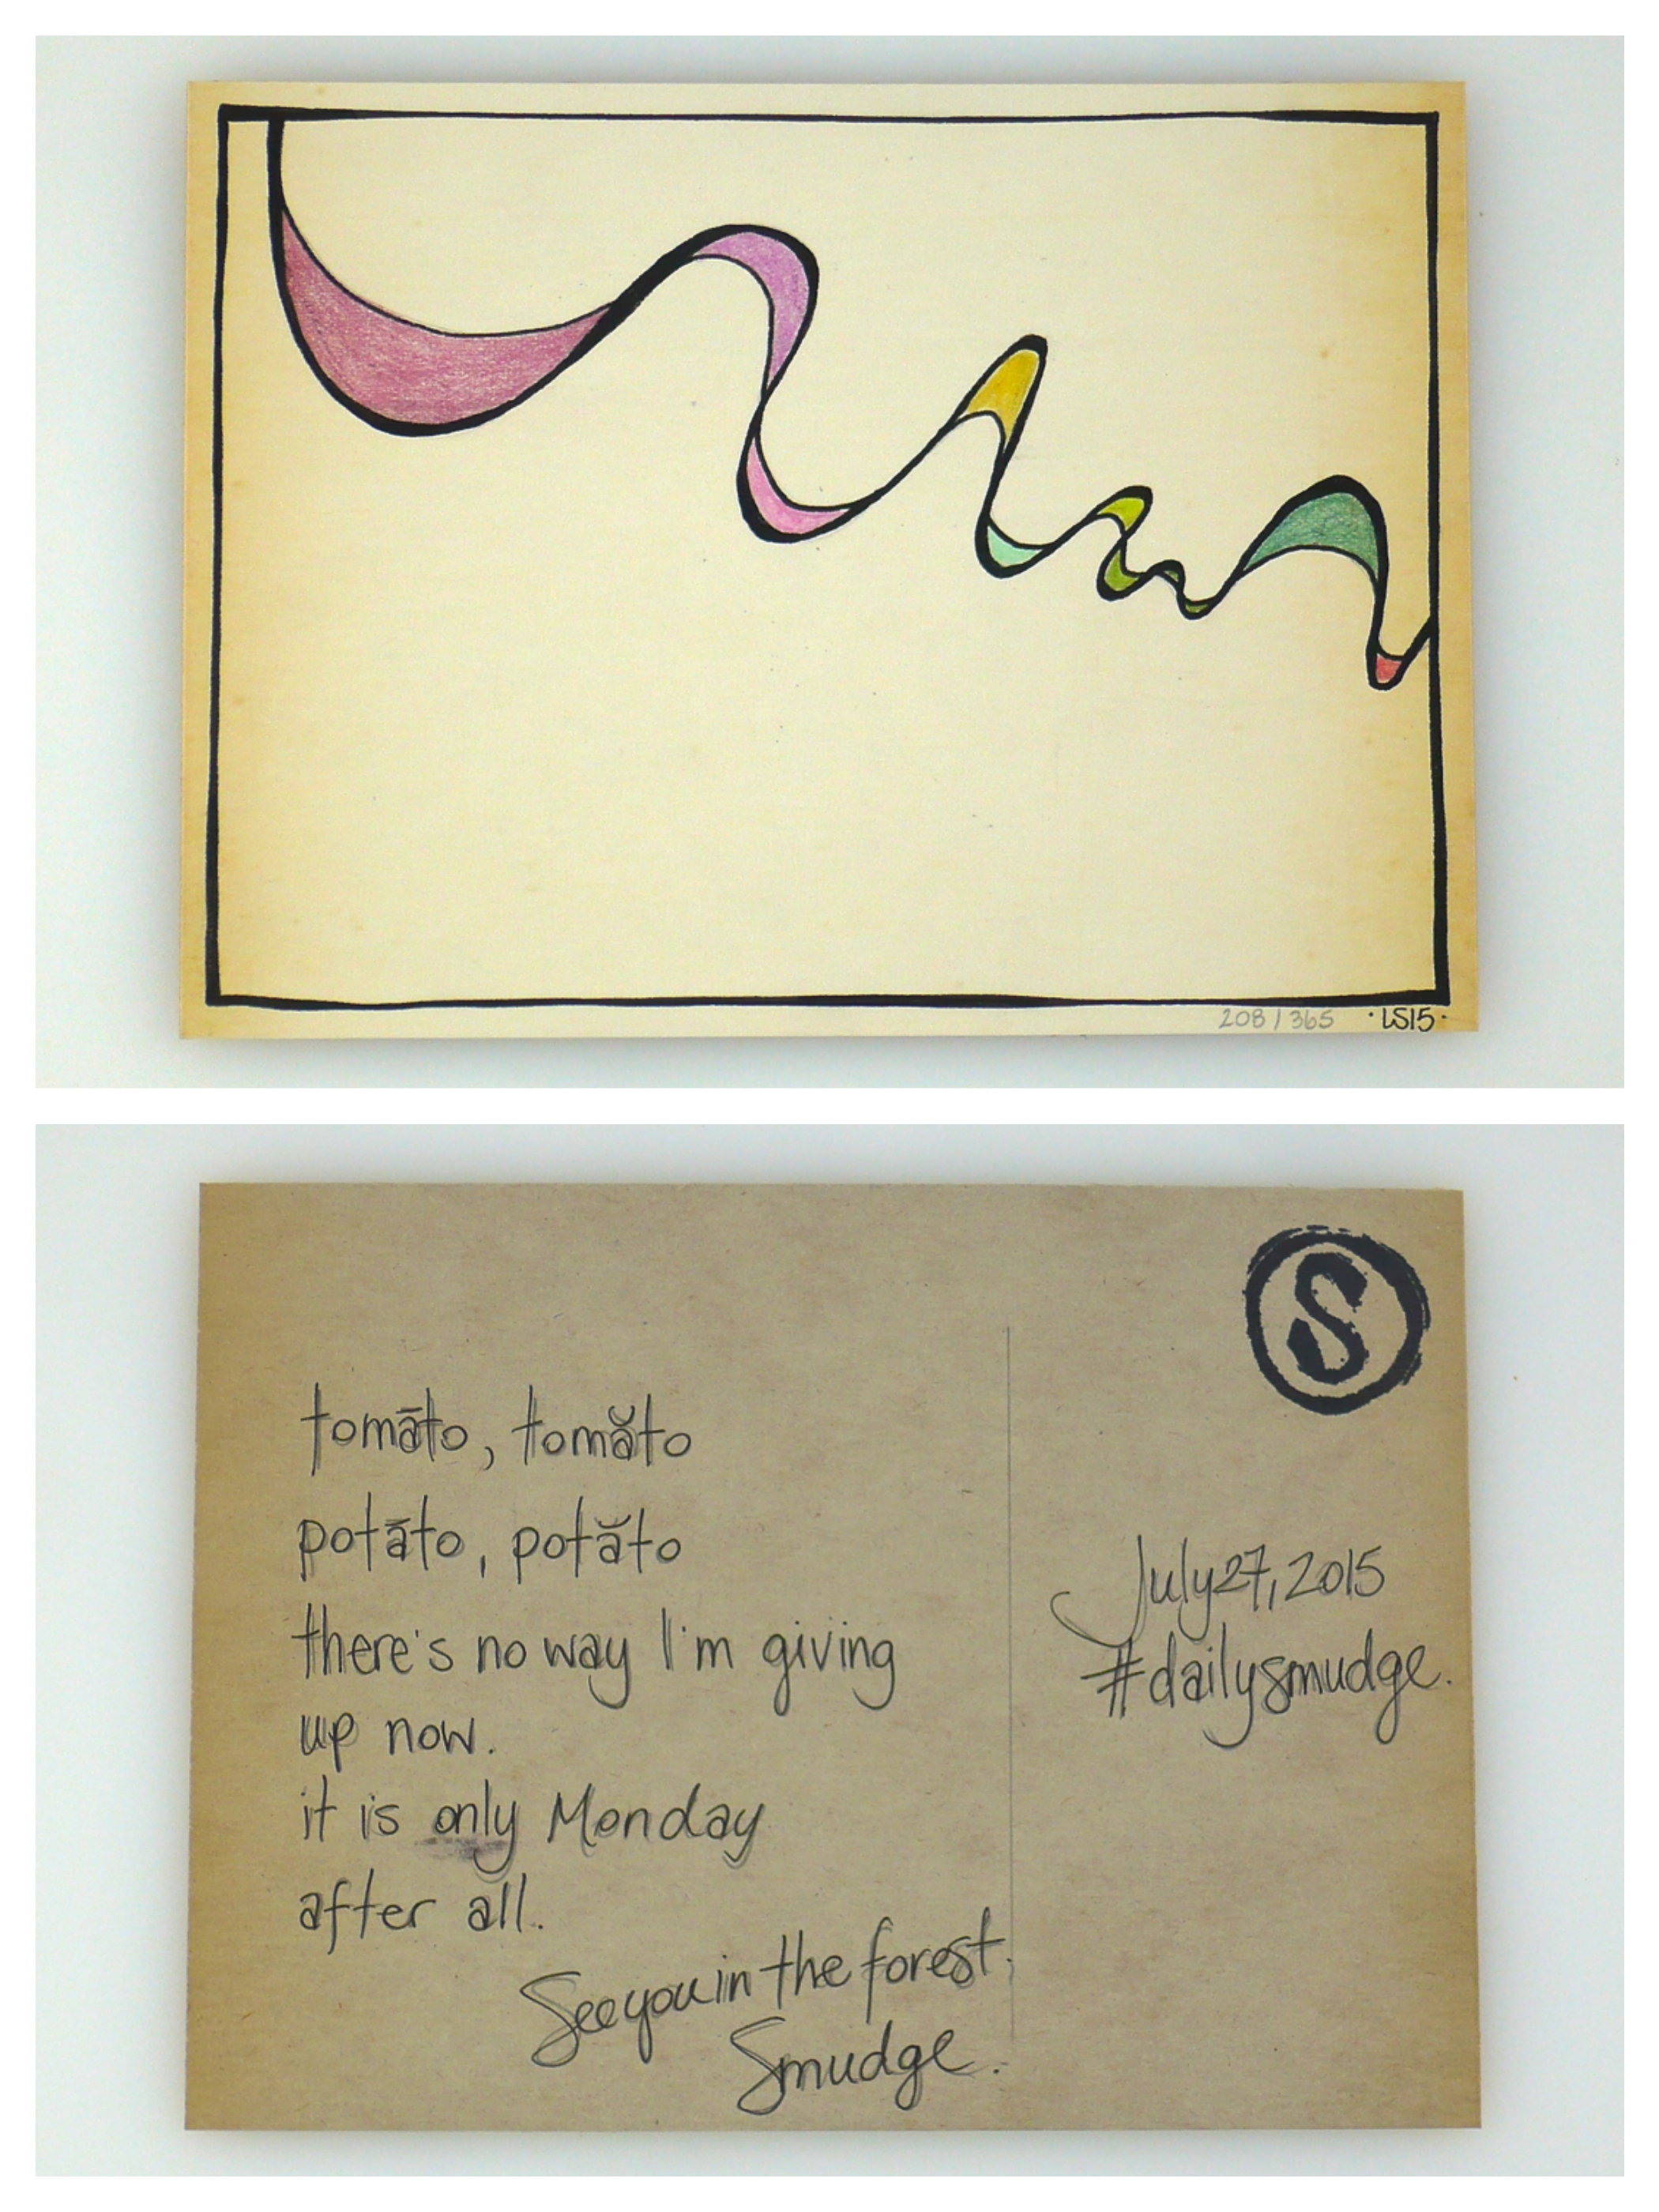 208/365 ·LS15·
S
tomāto, tomăto
potāto, potăto
there's no way I'm giving
up now.
it is only Monday
after all.
See you in the forest.
Smudge.
July 27, 2015
#dailysmudge.